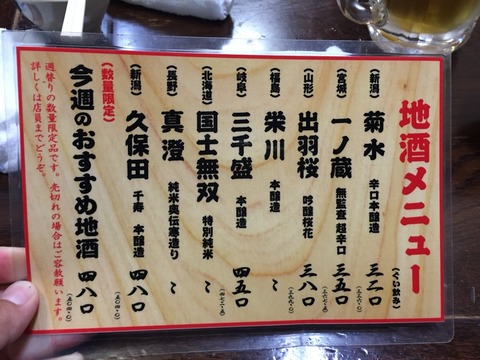 地酒メニュー
(ぐい飲み)
(新潟) 菊水 辛口本醸造 三二〇
(宮城) 一ノ蔵 無監査 超辛口 三五〇
(山形) 出羽桜 吟醸桜花 三八〇
(福島) 栄川 本醸造 〜
(岐阜) 三千盛 本醸造 四五〇
(北海道) 国士無双 特別純米 〜
(長野) 真澄 純米奥伝寒造り 〜
(数量限定)
(新潟) 久保田 千寿 本醸造 四八〇
今週のおすすめ地酒 四八〇
週替りの数量限定品です。売切れの場合はご容赦願います。
詳しくは店員までどうぞ。